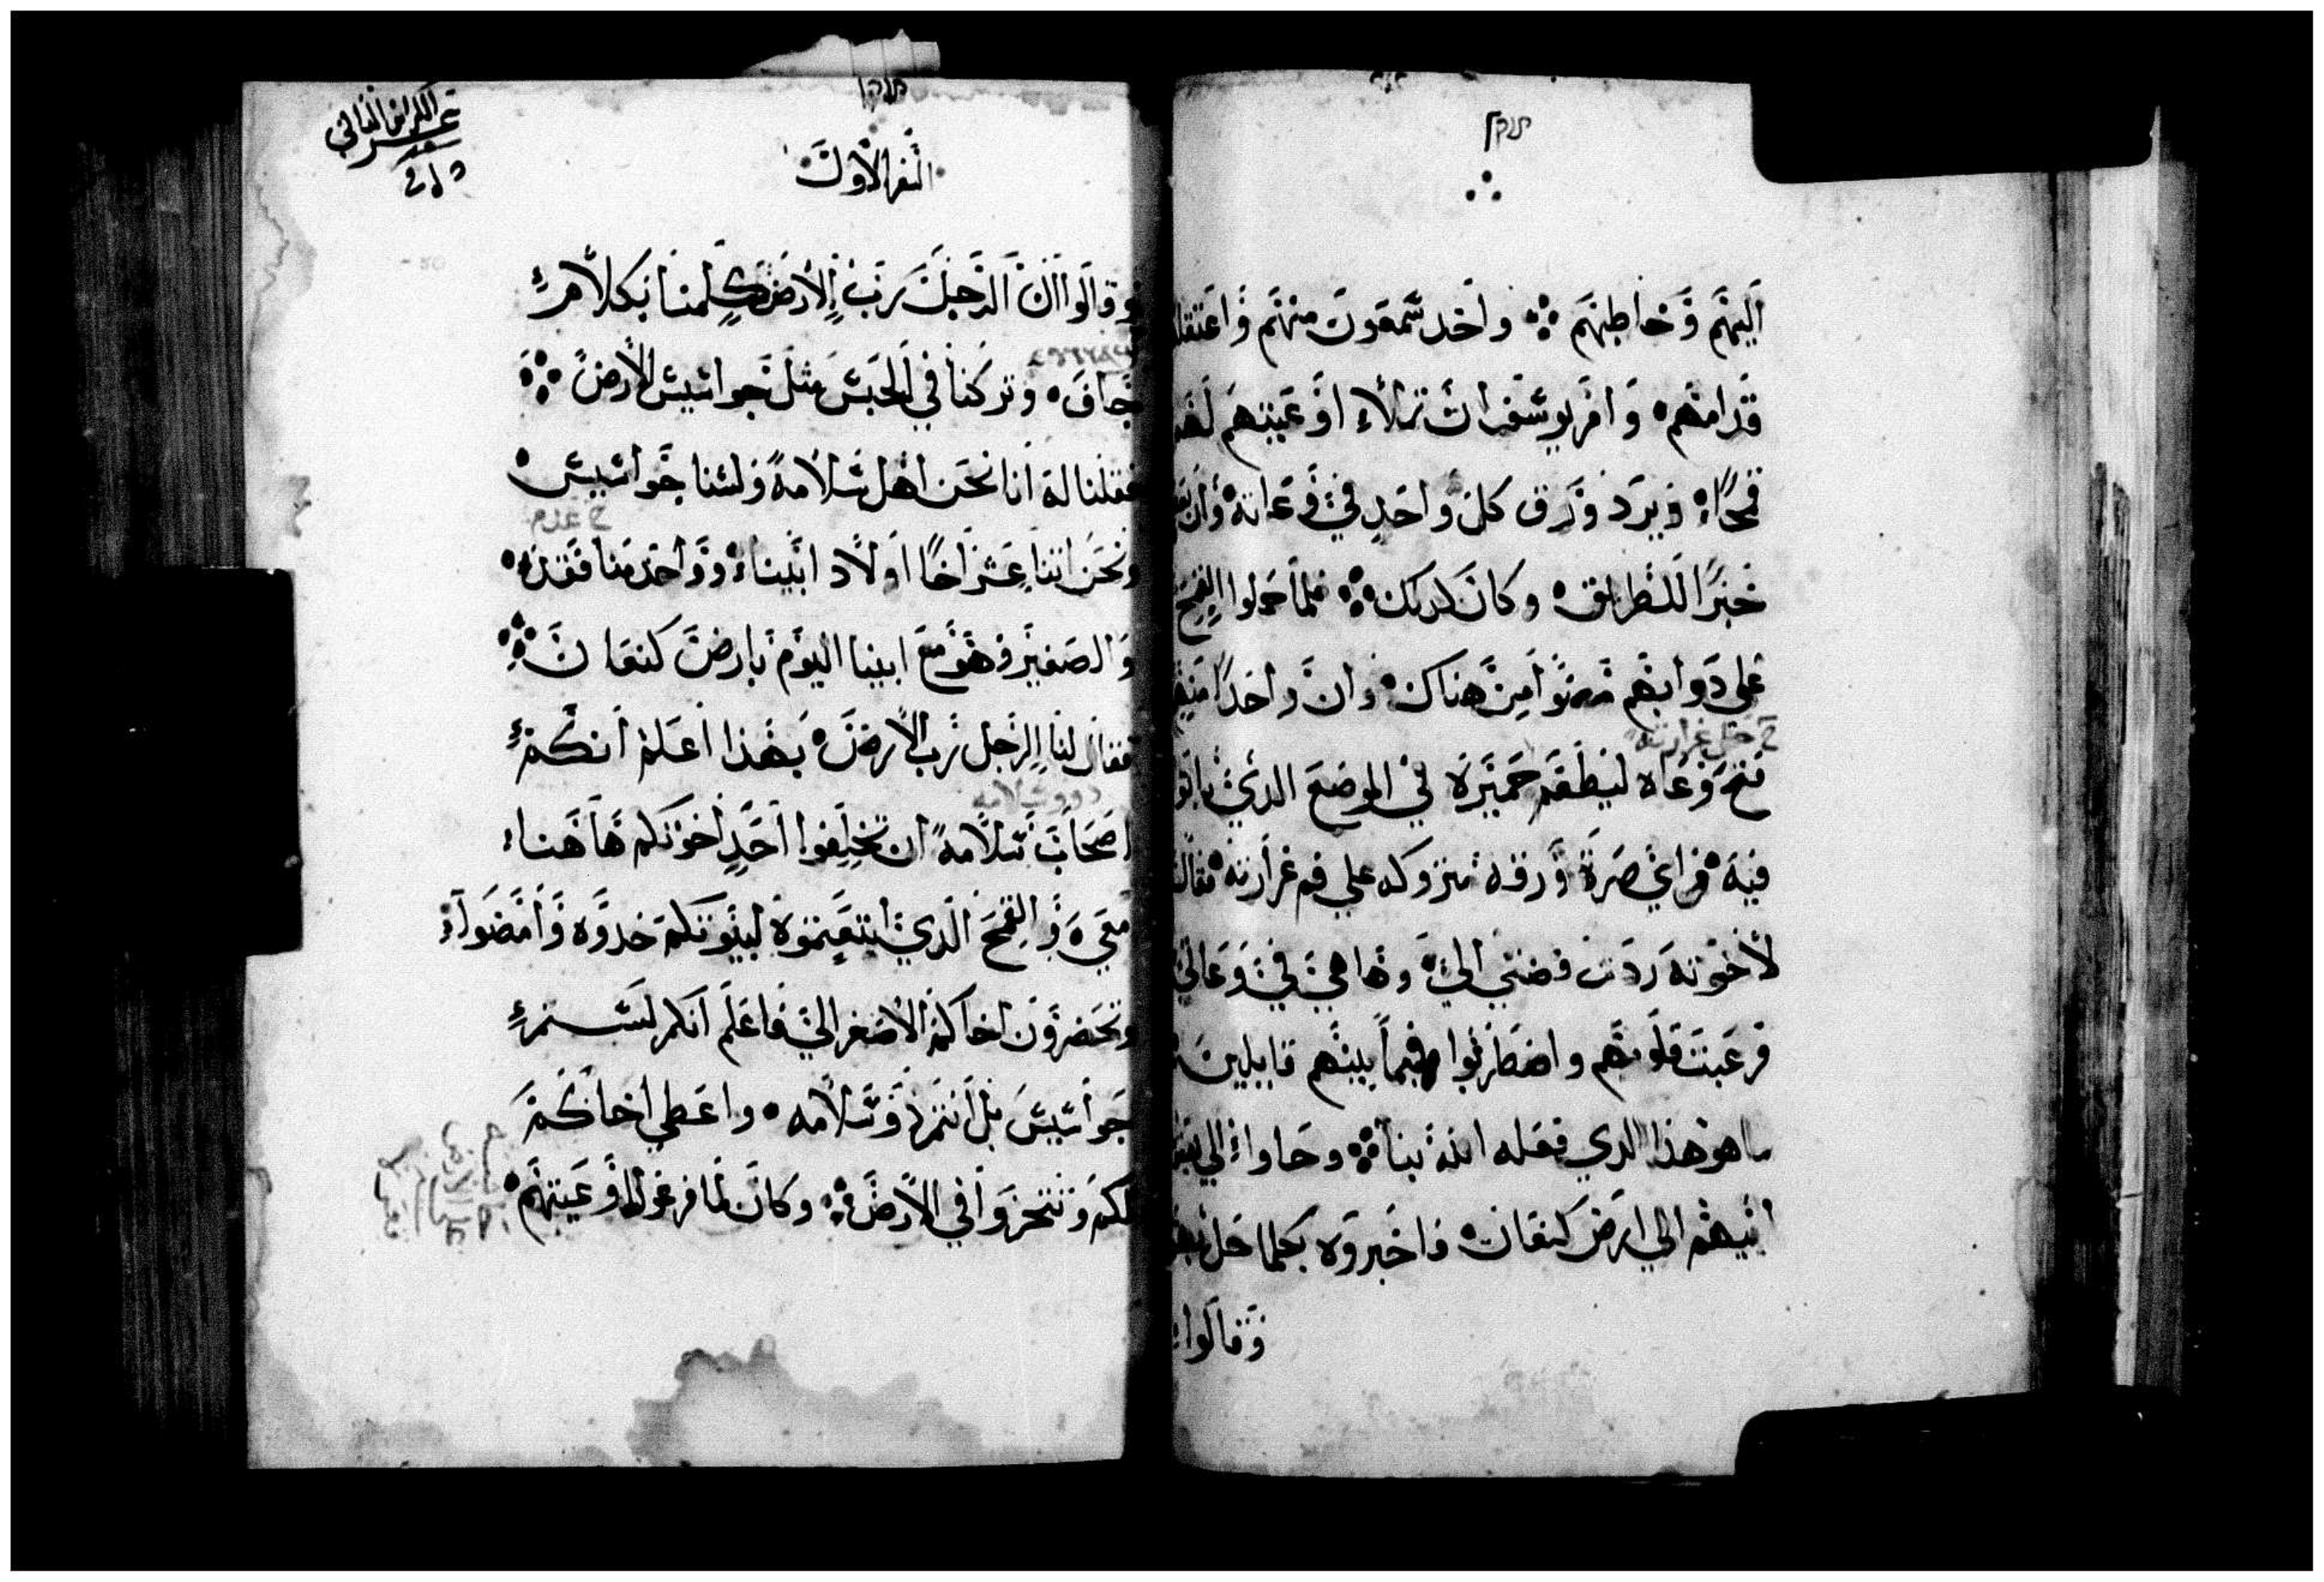 اليهم وخاطبهم ܀ واخد شمعون منهم واعتقله
قدامهم ܀ وامر يوسف ان تملاء اوعيتهم
قمحًا ويرد ورق كل واحد في وعاته وان
خبزًا للطريق ܀ وكان كدلك ܀ فلما حملوا القمح
علي دوابهم مضوا من هناك ܀ وان واحدًا منهم
ح حل غرارته
فتح وعاه ليطعم حميره في الموضع الدي باتوا
فيه ܀ فراي صرة ورقه متروكه علي فم غرارته ܀ فقال
لاخوته ردت فضتي الي ܀ وها هي في وعاي
فرعبت قلوبهم واضطربوا فيما بينهم قايلين
ما هو هذا الدي فعله الله بنا ܀ وجاوا الي
ابيهم الي ارض كنعان ܀ فاخبروه بكلما حل بهم
وقالوا
النفر الاول
وقالوا ان الرجل رب الارض كلمنا بكلام
جاف ܀ وتركنا في الحبس مثل جواسيس الارض ܀
فقلنا له انا نحن اهل سلامة ولسنا جواسيس ܀
ونحن اتنا عشر اخًا اولاد ابينا ܀ وواحد منا فقد ܀
والصغير فهو مع ابينا اليوم بارض كنعان ܀
فقال لنا الرجل رب الارض ܀ بهذا اعلم انكم
دوو سلامه
اصحاب سلامة ان تخلفوا احد اخوتكم هاهنا
معي ܀ والقمح الدي ابتعتموه لبيوتكم خدوه وامضوا
وتحضرون اخاكم الاصغر الي فاعلم انكم لستم
جواسيس بل انتم دوو سلامه ܀ واعطي اخاكم
لكم وتتجروا في الارض ܀ وكان لما فرغوا اوعيتهم ܀